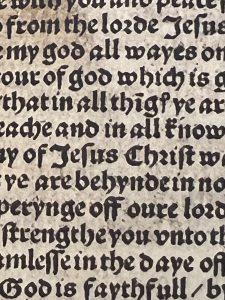 with you and peace f
from the lorde Jesus
my god all wayes on
our of god which is g
that in all thīgſ ye ar
eache and in all know
ny of Jesus Christ w
ye are behynde in no
perynge off oure lord
strengthe you vnto th
amlesse in the daye off
God is faythfull / b